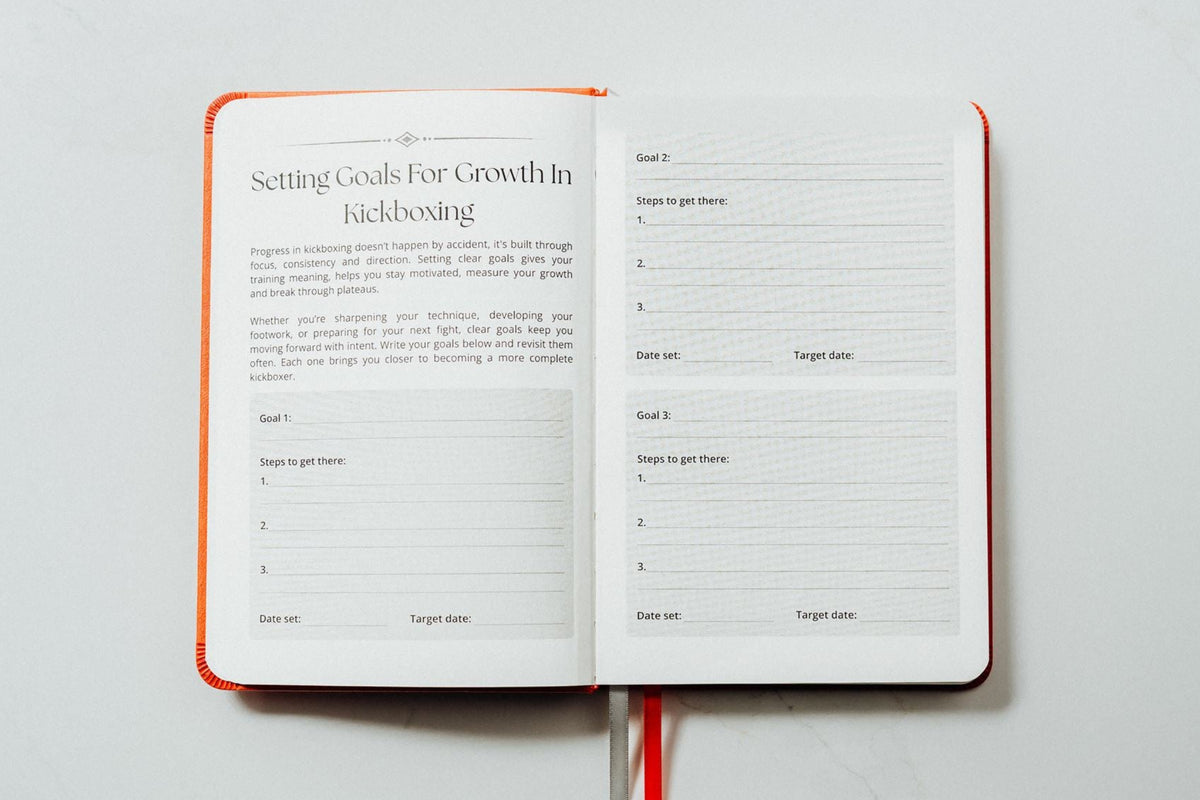 Setting Goals For Growth In
Kickboxing
Progress in kickboxing doesn't happen by accident, it's built through
focus, consistency and direction. Setting clear goals gives your
training meaning, helps you stay motivated, measure your growth
and break through plateaus.
Whether you're sharpening your technique, developing your
footwork, or preparing for your next fight, clear goals keep you
moving forward with intent. Write your goals below and revisit them
often. Each one brings you closer to becoming a more complete
kickboxer.
Goal 1:
Steps to get there:
1.
2.
3.
Date set: Target date:
Goal 2:
Steps to get there:
1.
2.
3.
Date set: Target date:
Goal 3:
Steps to get there:
1.
2.
3.
Date set: Target date: